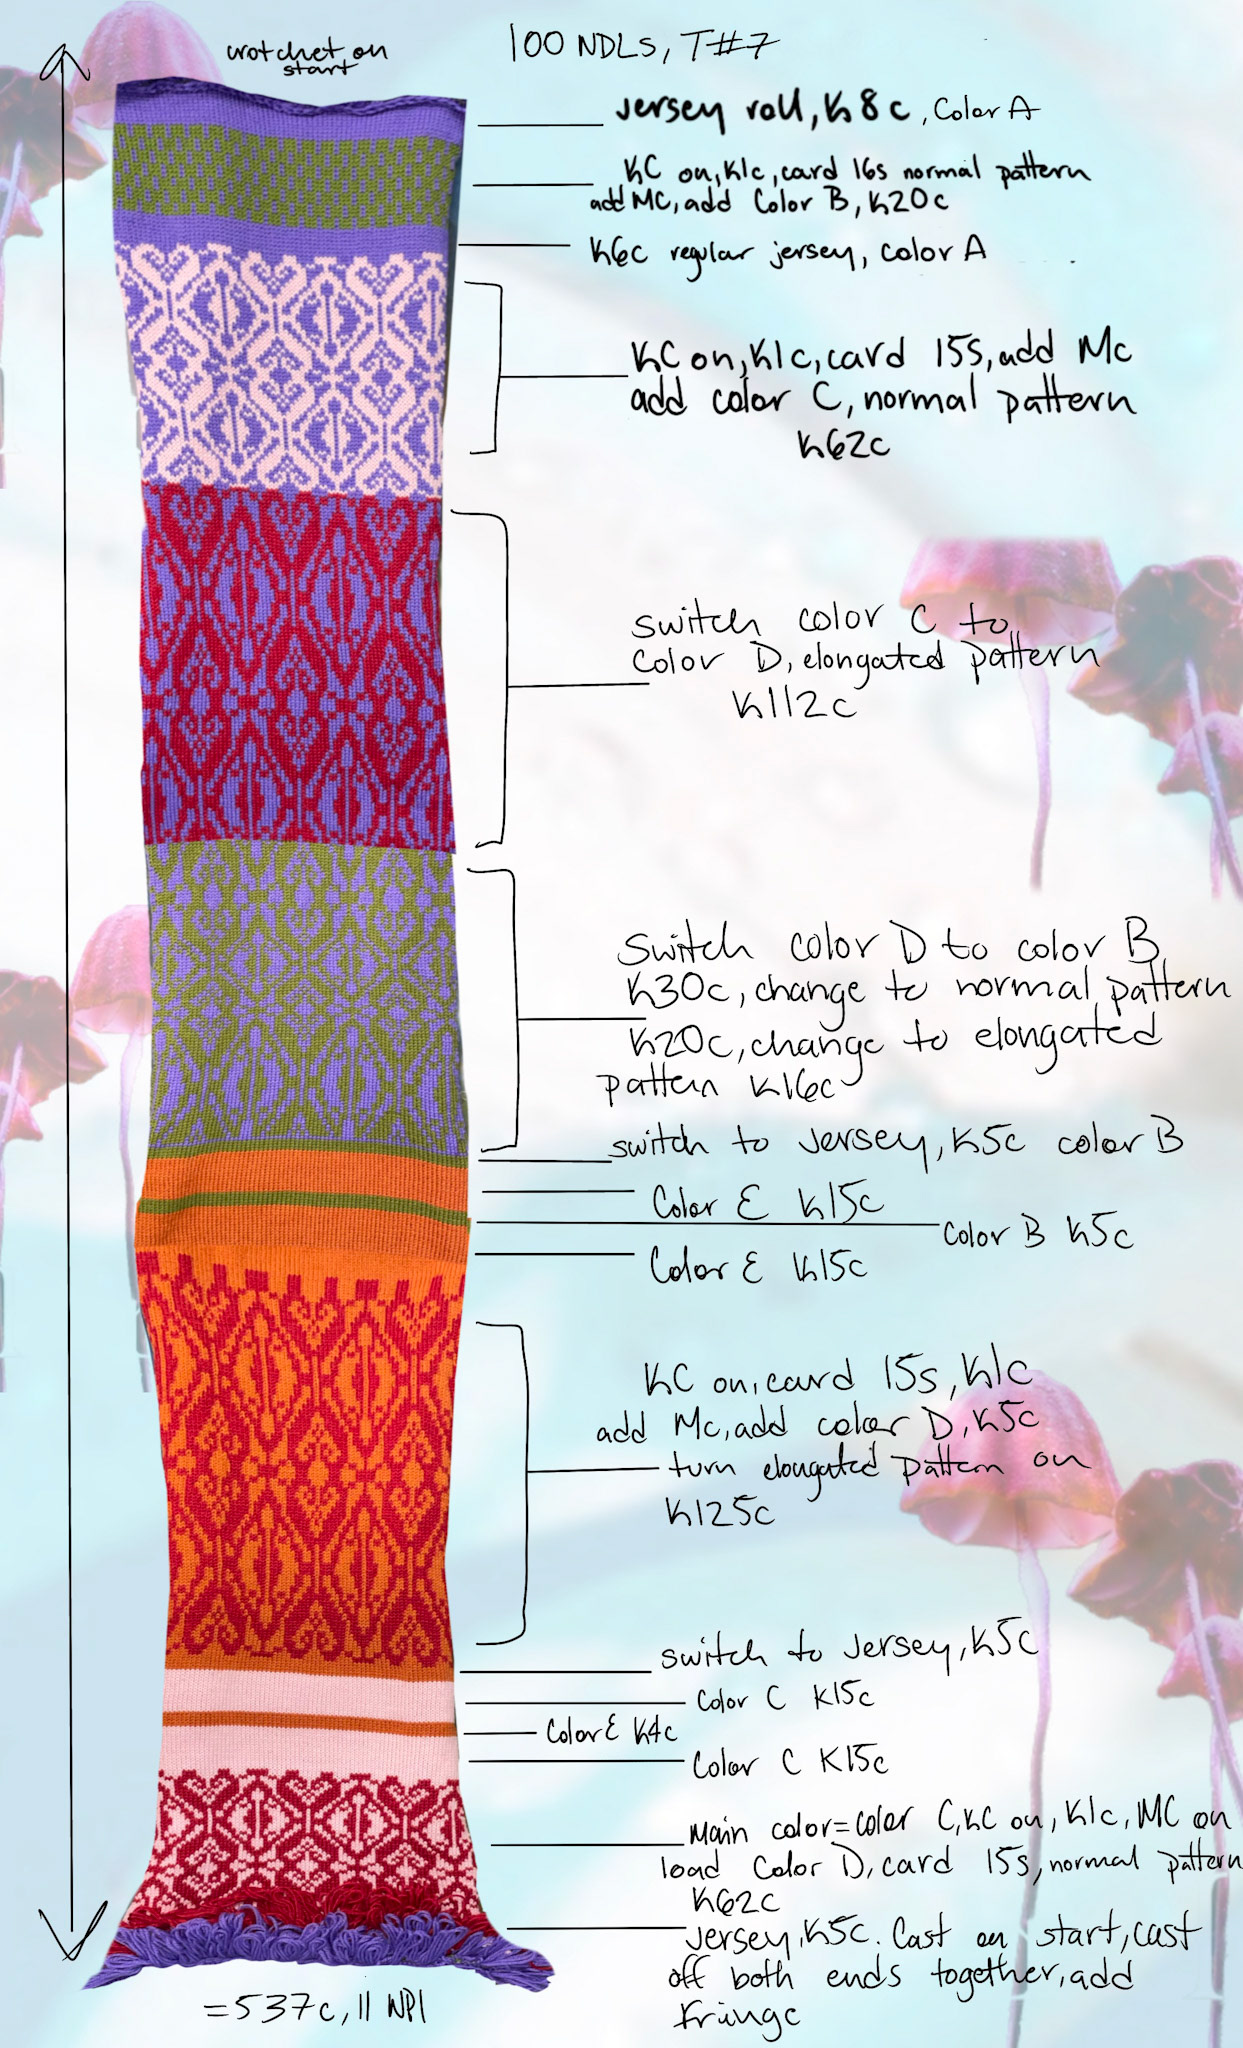 crotchet on
start
100 NDLS, T#7
Jersey roll, K8c, Color A
KC on, K1c, card 16s normal pattern
add MC, add Color B, K20c
K6c regular jersey, color A
KC on, K1c, card 15s, add MC
add color C, normal pattern
K62c
switch color C to
color D, elongated pattern
K112c
Switch color D to color B
K30c, change to normal pattern
K20c, change to elongated
pattern K16c
switch to Jersey, K5c color B
Color E K15c
Color B K5c
Color E K15c
KC on, card 15s, K1c
add MC, add color D, K5c
turn elongated pattern on
K125c
switch to Jersey, K5c
Color C K15c
Color E K4c
Color C K15c
Main color=color C, KC on, K1c, MC on
load Color D, card 15s, normal pattern
K62c
Jersey, K5c. Cast on start, cast
off both ends together, add
fringe
=537c, 11 WPI